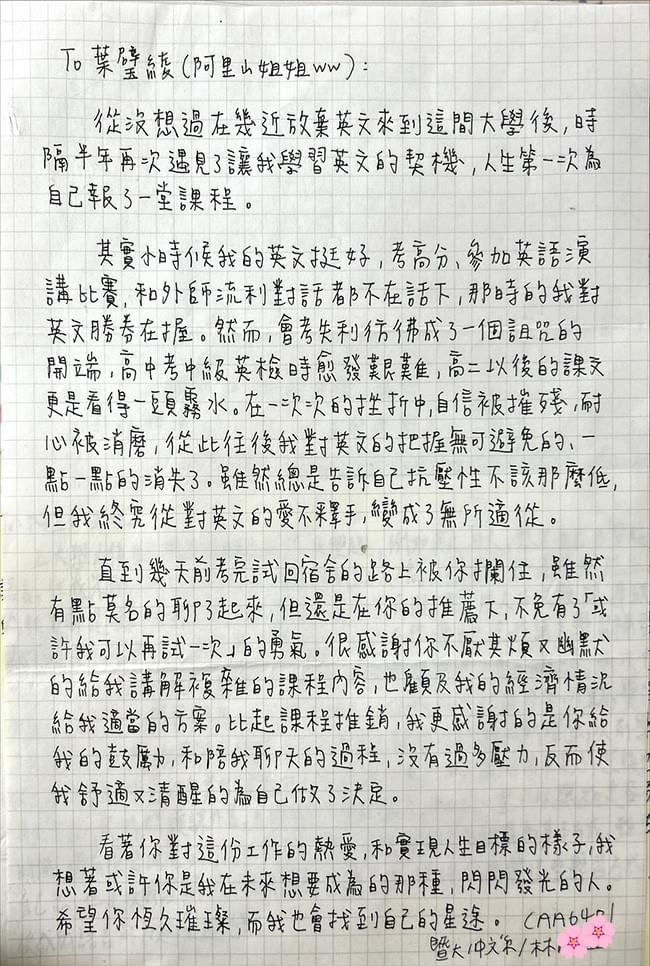 To 葉璧綾(阿里山姐姐ww):
從沒想過在幾近放棄英文來到這間大學後,時
隔半年再次遇見了讓我學習英文的契機,人生第一次為
自己報了一堂課程。
其實小時候我的英文挺好,考高分、參加英語演
講比賽,和外師流利對話都不在話下,那時的我對
英文勝券在握。然而,會考失利彷彿成了一個詛咒的
開端,高中考中級英檢時愈發艱難,高二以後的課文
更是看得一頭霧水。在一次次的挫折中,自信被摧殘,耐
心被消磨,從此往後我對英文的把握無可避免的、一
點一點的消失了。雖然總是告訴自己抗壓性不該那麼低,
但我終究從對英文的愛不釋手,變成了無所適從。
直到幾天前考完試回宿舍的路上被你攔住,雖然
有點莫名的聊了起來,但還是在你的推薦下,不免有了「或
許我可以再試一次」的勇氣。很感謝你不厭其煩又幽默
的給我講解複雜的課程內容,也顧及我的經濟情況
給我適當的方案。比起課程推銷,我更感謝的是你給
我的鼓勵,和陪我聊天的過程,沒有過多壓力,反而使
我舒適又清醒的為自己做了決定。
看著你對這份工作的熱愛,和實現人生目標的樣子,我
想著或許你是我在未來想要成為的那種,閃閃發光的人。
希望你恆久璀璨,而我也會找到自己的星途。 CAA64
暨大/中文系/林